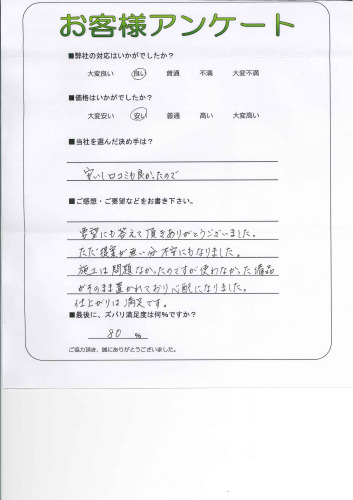 お客様アンケート
■弊社の対応はいかがでしたか？
大変良い 良い 普通 不満 大変不満
■価格はいかがでしたか？
大変安い 安い 普通 高い 大変高い
■当社を選んだ決め手は？
安いし口コミも良かったので
■ご感想・ご要望などをお書き下さい。
要望にも答えて頂きありがとうございました。
ただ提案が無い分不安にもなりました。
施工は問題なかったのですが使わなかった備品
がそのまま置かれており心配になりました。
仕上がりは満足です。
■最後に、ズバリ満足度は何％ですか？
80 %
ご協力頂き、誠にありがとうございました。